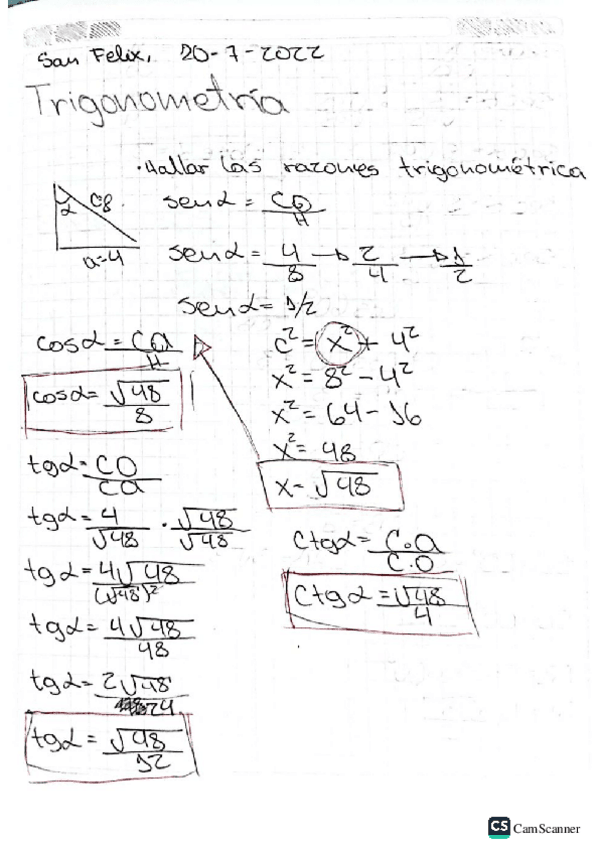 San Felix, 20-7-2022
Trigonometría
· Hallar las razones trigonométrica
α c=8
a=4
sen α = CO/H
sen α = 4/8 → 2/4 → 1/2
sen α = 1/2
cos α = Ca/H
cos α = √48/8
c² = x² + 4²
x² = 8² - 4²
x² = 64 - 16
x² = 48
x = √48
tg α = CO/Ca
tg α = 4/√48 · √48/√48
tg α = 4√48/(√48)²
tg α = 4√48/48
tg α = 2√48/24
tg α = √48/12
Ctg α = C.a/C.O
Ctg α = √48/4
CS CamScanner